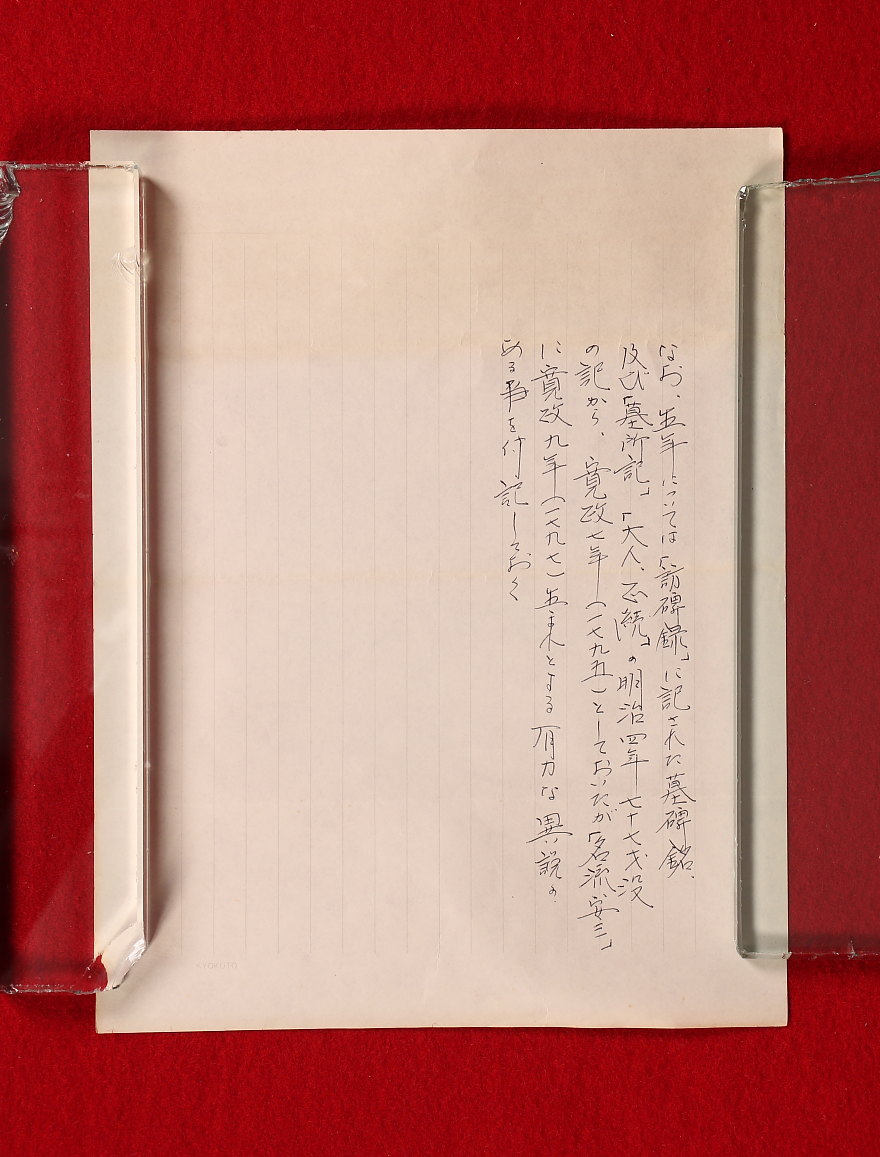 なお、生年については「訪碑録」に記された墓碑銘、
及び「墓所記」「大人、正続」の明治四年七十七才没
の記から、寛政七年(一七九五)としておいたが「名流、
に寛政九年(一七九七)生来とする有力な異説の
ある事を付記しておく
KYOKUTO